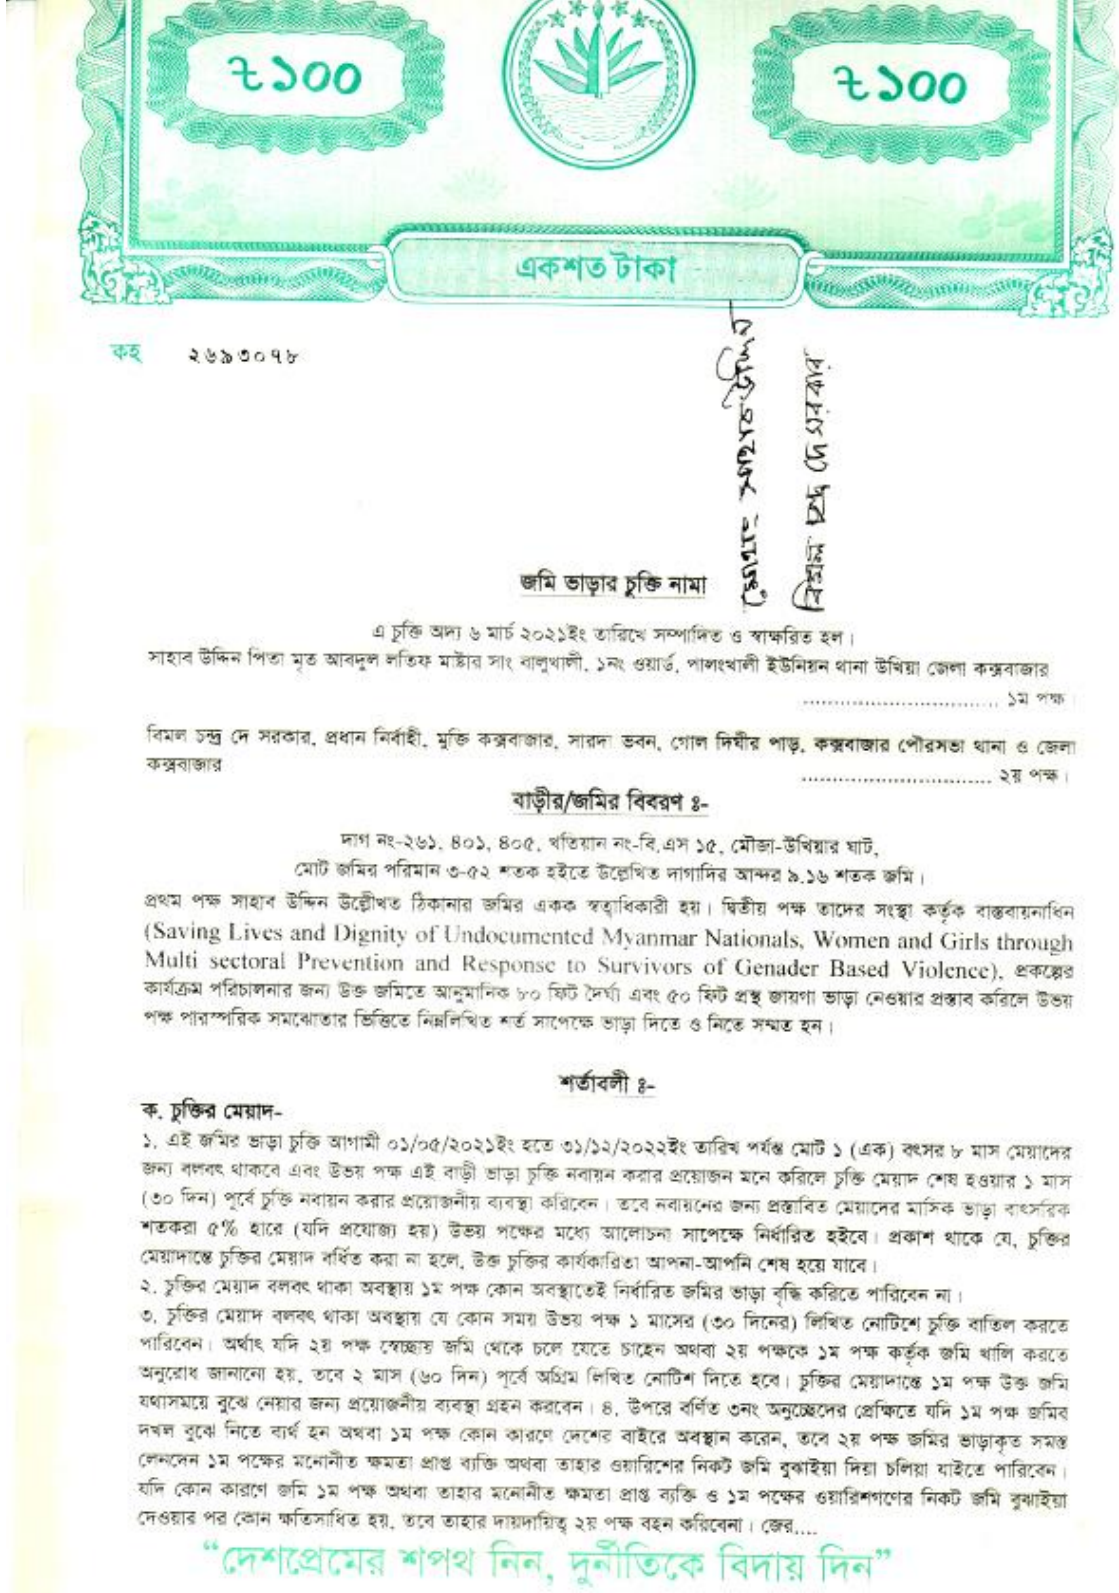 ৳১০০
৳১০০
একশত টাকা
কহ ২৬৯৩০৭৮
মোহাং সাহাবউদ্দিন
বিমল চন্দ্র দে সরকার
জমি ভাড়ার চুক্তি নামা
এ চুক্তি অদ্য ৬ মার্চ ২০২১ইং তারিখে সম্পাদিত ও স্বাক্ষরিত হল।
সাহাব উদ্দিন পিতা মৃত আবদুল লতিফ মাষ্টার সাং বালুখালী, ১নং ওয়ার্ড, পালংখালী ইউনিয়ন থানা উখিয়া জেলা কক্সবাজার
................................. ১ম পক্ষ।
বিমল চন্দ্র দে সরকার, প্রধান নির্বাহী, মুক্তি কক্সবাজার, সারদা ভবন, গোল দিঘীর পাড়, কক্সবাজার পৌরসভা থানা ও জেলা
কক্সবাজার ................................ ২য় পক্ষ।
বাড়ীর/জমির বিবরণ ঃ-
দাগ নং-২৬১, ৪০১, ৪০৫, খতিয়ান নং-বি.এস ১৫, মৌজা-উখিয়ার ঘাট,
মোট জমির পরিমান ৩-৫২ শতক হইতে উল্লেখিত দাগাদির আন্দর ৯.১৬ শতক জমি।
প্রথম পক্ষ সাহাব উদ্দিন উল্লেীখত ঠিকানার জমির একক স্বত্বাধিকারী হয়। দ্বিতীয় পক্ষ তাদের সংস্থা কর্তৃক বাস্তবায়নাধিন
(Saving Lives and Dignity of Undocumented Myanmar Nationals, Women and Girls through
Multi sectoral Prevention and Response to Survivors of Genader Based Violence), প্রকল্পের
কার্যক্রম পরিচালনার জন্য উক্ত জমিতে আনুমানিক ৮০ ফিট দৈর্ঘ্য এবং ৫০ ফিট প্রস্থ জায়গা ভাড়া নেওয়ার প্রস্তাব করিলে উভয়
পক্ষ পারস্পরিক সমঝোতার ভিত্তিতে নিম্নলিখিত শর্ত সাপেক্ষে ভাড়া দিতে ও নিতে সম্মত হন।
শর্তাবলী ঃ-
ক. চুক্তির মেয়াদ-
১. এই জমির ভাড়া চুক্তি আগামী ০১/০৫/২০২১ইং হতে ৩১/১২/২০২২ইং তারিখ পর্যন্ত মোট ১ (এক) বৎসর ৮ মাস মেয়াদের
জন্য বলবৎ থাকবে এবং উভয় পক্ষ এই বাড়ী ভাড়া চুক্তি নবায়ন করার প্রয়োজন মনে করিলে চুক্তি মেয়াদ শেষ হওয়ার ১ মাস
(৩০ দিন) পূর্বে চুক্তি নবায়ন করার প্রয়োজনীয় ব্যবস্থা করিবেন। তবে নবায়নের জন্য প্রস্তাবিত মেয়াদের মাসিক ভাড়া বাৎসরিক
শতকরা ৫% হারে (যদি প্রযোজ্য হয়) উভয় পক্ষের মধ্যে আলোচনা সাপেক্ষে নির্ধারিত হইবে। প্রকাশ থাকে যে, চুক্তির
মেয়াদান্তে চুক্তির মেয়াদ বর্ধিত করা না হলে, উক্ত চুক্তির কার্যকারিতা আপনা-আপনি শেষ হয়ে যাবে।
২. চুক্তির মেয়াদ বলবৎ থাকা অবস্থায় ১ম পক্ষ কোন অবস্থাতেই নির্ধারিত জমির ভাড়া বৃদ্ধি করিতে পারিবেন না।
৩. চুক্তির মেয়াদ বলবৎ থাকা অবস্থায় যে কোন সময় উভয় পক্ষ ১ মাসের (৩০ দিনের) লিখিত নোটিশে চুক্তি বাতিল করতে
পারিবেন। অর্থাৎ যদি ২য় পক্ষ স্বেচ্ছায় জমি থেকে চলে যেতে চাহেন অথবা ২য় পক্ষকে ১ম পক্ষ কর্তৃক জমি খালি করতে
অনুরোধ জানানো হয়, তবে ২ মাস (৬০ দিন) পূর্বে অগ্রিম লিখিত নোটিশ দিতে হবে। চুক্তির মেয়াদান্তে ১ম পক্ষ উক্ত জমি
যথাসময়ে বুঝে নেয়ার জন্য প্রয়োজনীয় ব্যবস্থা গ্রহন করবেন। ৪. উপরে বর্ণিত ৩নং অনুচ্ছেদের প্রেক্ষিতে যদি ১ম পক্ষ জমির
দখল বুঝে নিতে ব্যর্থ হন অথবা ১ম পক্ষ কোন কারণে দেশের বাইরে অবস্থান করেন, তবে ২য় পক্ষ জমির ভাড়াকৃত সমস্ত
লেনদেন ১ম পক্ষের মনোনীত ক্ষমতা প্রাপ্ত ব্যক্তি অথবা তাহার ওয়ারিশের নিকট জমি বুঝাইয়া দিয়া চলিয়া যাইতে পারিবেন।
যদি কোন কারণে জমি ১ম পক্ষ অথবা তাহার মনোনীত ক্ষমতা প্রাপ্ত ব্যক্তি ও ১ম পক্ষের ওয়ারিশগণের নিকট জমি বুঝাইয়া
দেওয়ার পর কোন ক্ষতিসাধিত হয়, তবে তাহার দায়দায়িত্ব ২য় পক্ষ বহন করিবেনা। জের....
“দেশপ্রেমের শপথ নিন, দুর্নীতিকে বিদায় দিন”